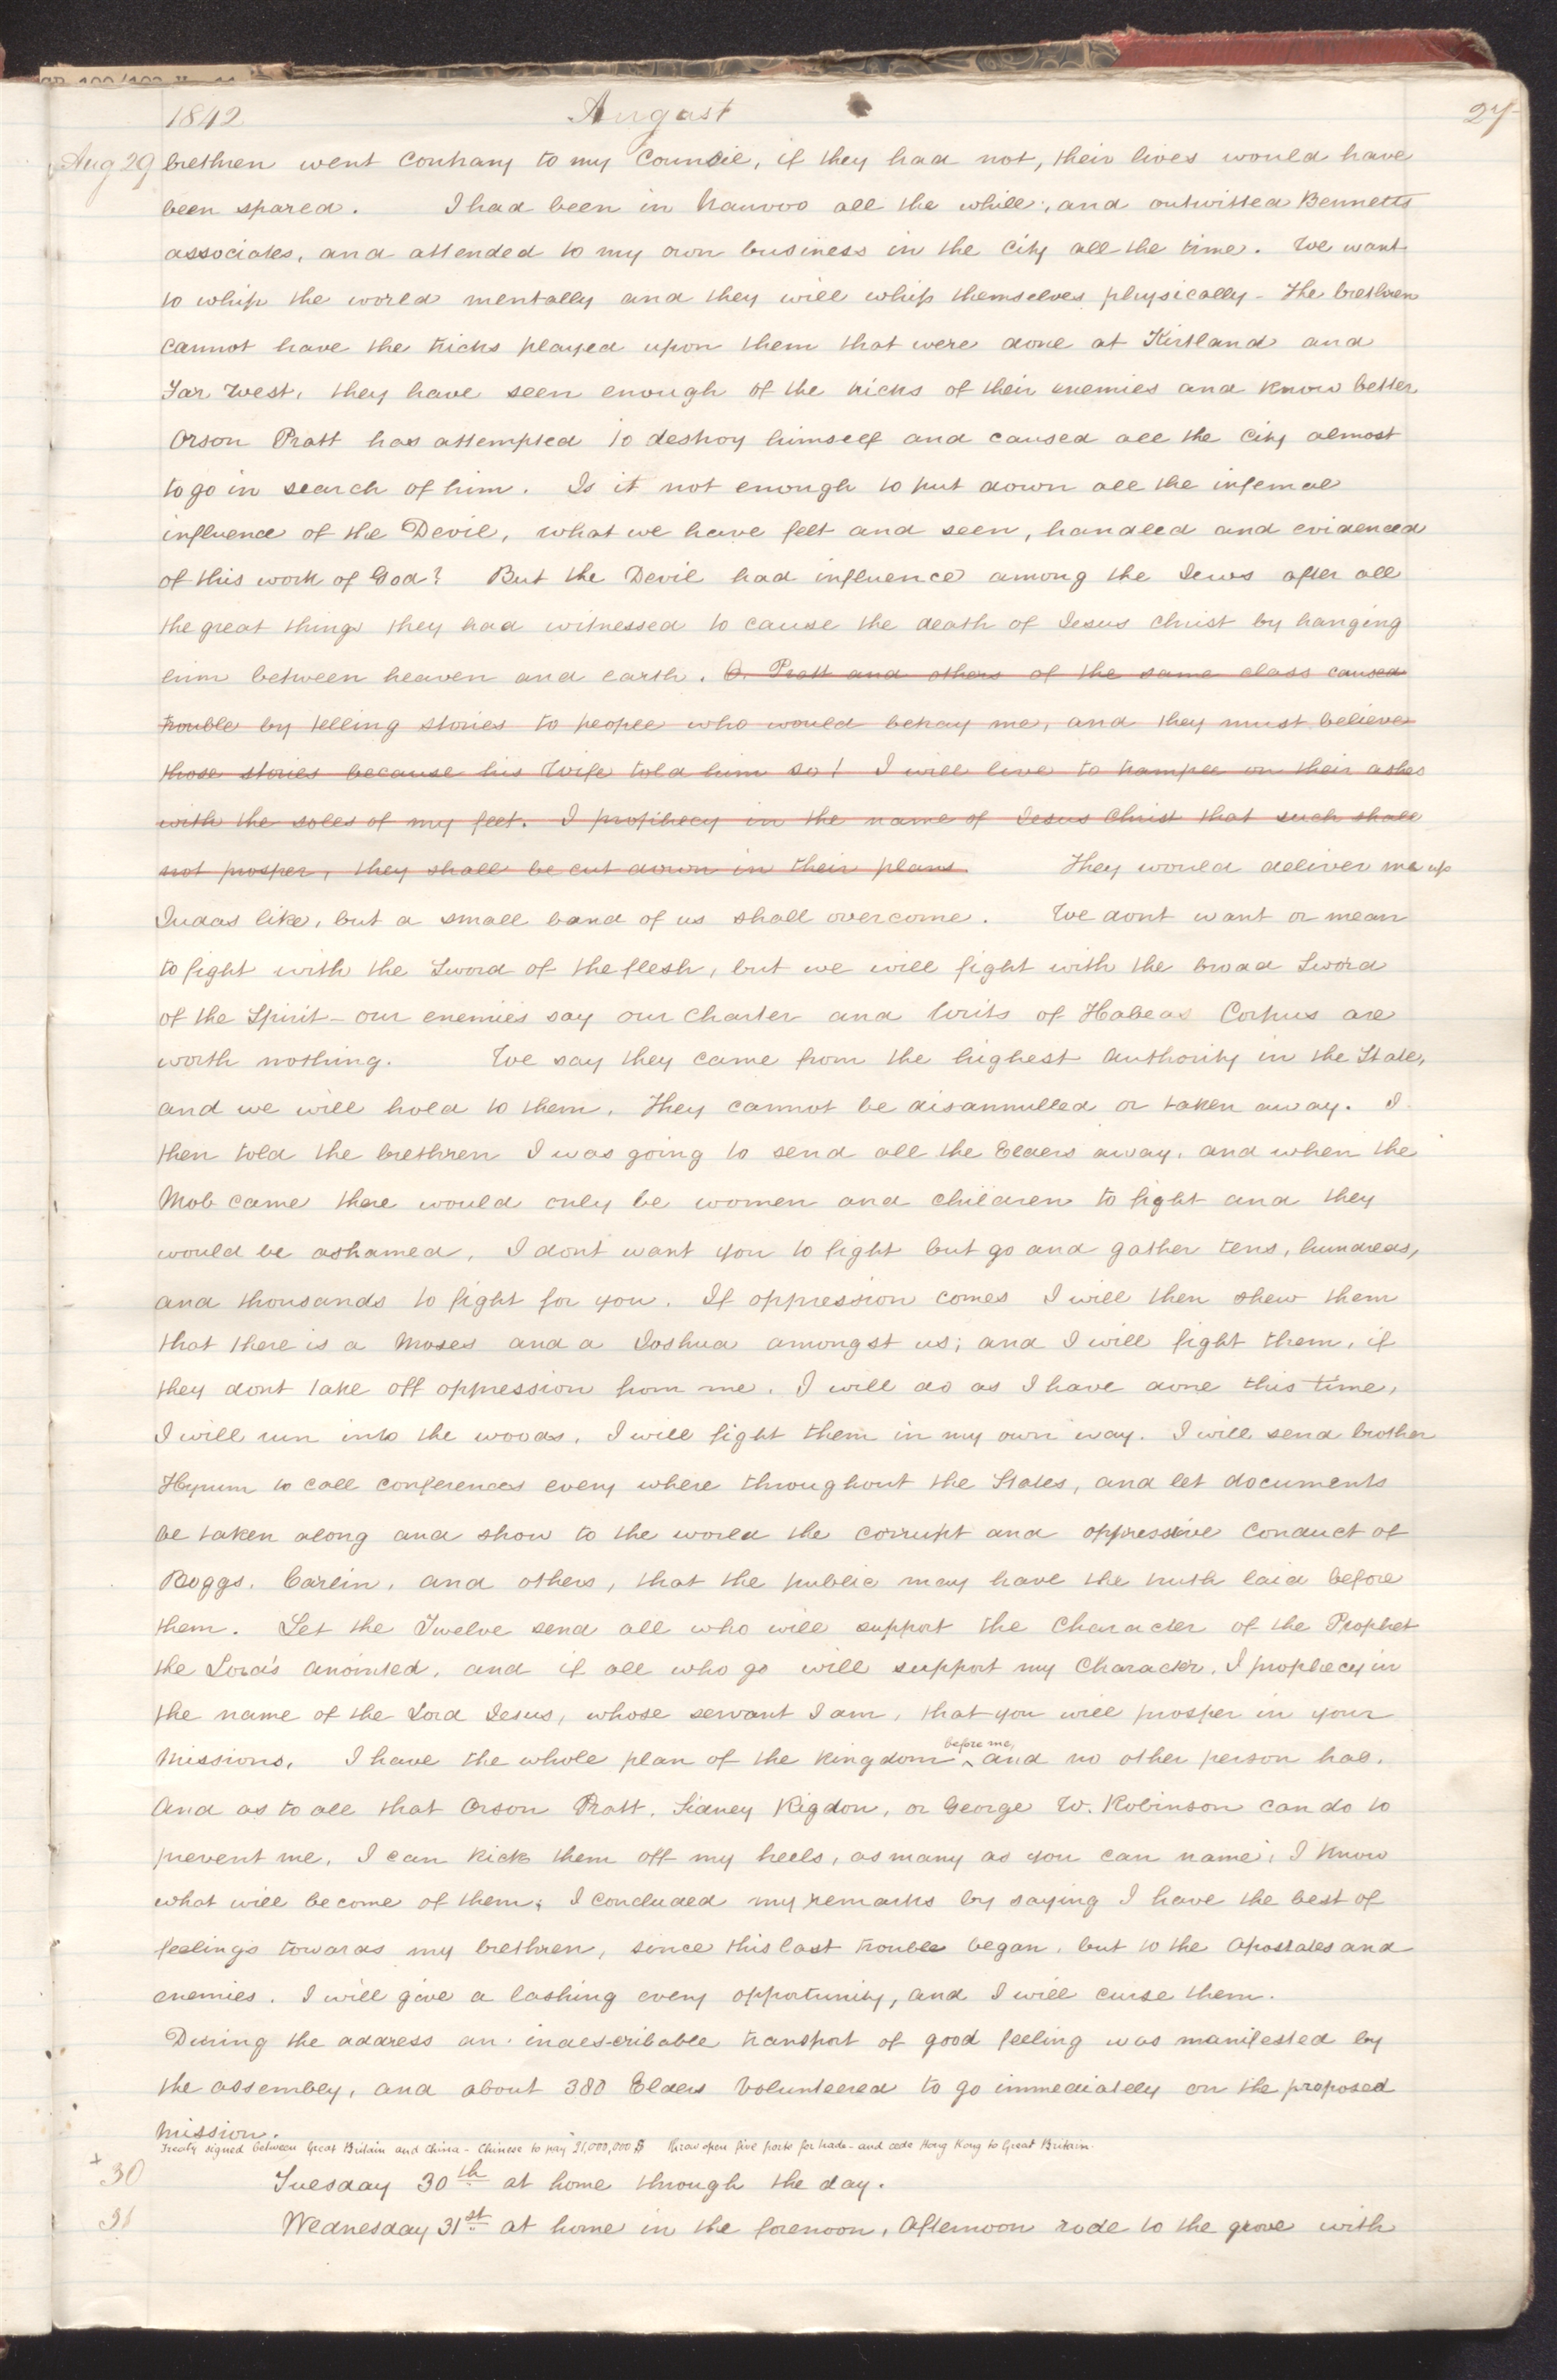 1842 August 27
Aug 29 brethren went contrary to my Council, if they had not, their lives would have
been spared. I had been in Nauvoo all the while, and outwitted Bennetts
associates, and attended to my own business in the City all the time. We want
to whip the world mentally and they will whip themselves physically - The brethren
cannot have the tricks played upon them that were done at Kirtland and
Far West, they have seen enough of the tricks of their enemies and know better
Orson Pratt has attempted to destroy himself and caused all the City almost
to go in search of him. Is it not enough to put down all the infernal
influence of the Devil, what we have felt and seen, handled and evidenced
of this work of God? But the Devil had influence among the Jews after all
the great things they had witnessed to cause the death of Jesus Christ by hanging
him between heaven and earth. O. Pratt and others of the same class caused
trouble by telling stories to people who would betray me, and they must believe
those stories because his Wife told him so! I will live to trample on their ashes
with the soles of my feet. I prophecy in the name of Jesus Christ that such shall
not prosper, they shall be cut down in their plans. They would deliver me up
Judas like, but a small band of us shall overcome. We dont want or mean
to fight with the Sword of the flesh, but we will fight with the broad Sword
of the Spirit - our enemies say our Charter and Writs of Habeas Corpus are
worth nothing. We say they came from the highest authority in the State,
and we will hold to them. They cannot be disannulled or taken away. I
then told the brethren I was going to send all the Elders away, and when the
Mob came there would only be women and children to fight and they
would be ashamed. I dont want you to fight but go and gather tens, hundreds,
and thousands to fight for you. If oppression comes I will then shew them
that there is a Moses and a Joshua amongst us; and I will fight them, if
they dont take off oppression from me. I will do as I have done this time,
I will run into the woods. I will fight them in my own way. I will send brother
Hyrum to call conferences every where throughout the States, and let documents
be taken along and show to the world the corrupt and oppressive conduct of
Boggs, Carlin, and others, that the public may have the truth laid before
them. Let the Twelve send all who will support the Character of the Prophet
the Lord's anointed, and if all who go will support my Character, I prophecy in
the name of the Lord Jesus, whose servant I am, that you will prosper in your
Missions. I have the whole plan of the kingdom before me, and no other person has.
And as to all that Orson Pratt, Sidney Rigdon, or George W. Robinson can do to
prevent me, I can kick them off my heels, as many as you can name, I know
what will become of them; I concluded my remarks by saying I have the best of
feelings towards my brethren, since this last trouble began, but to the apostates and
enemies, I will give a lashing every opportunity, and I will curse them.
During the address an indescribable transport of good feeling was manifested by
the assembly, and about 380 Elders volunteered to go immediately on the proposed
Mission.
Treaty signed between Great Britain and China - Chinese to pay 21,000,000 $ throw open five ports for trade - and cede Hong Kong to Great Britain.
+ 30 Tuesday 30th at home through the day.
31 Wednesday 31st at home in the forenoon, Afternoon rode to the grove with